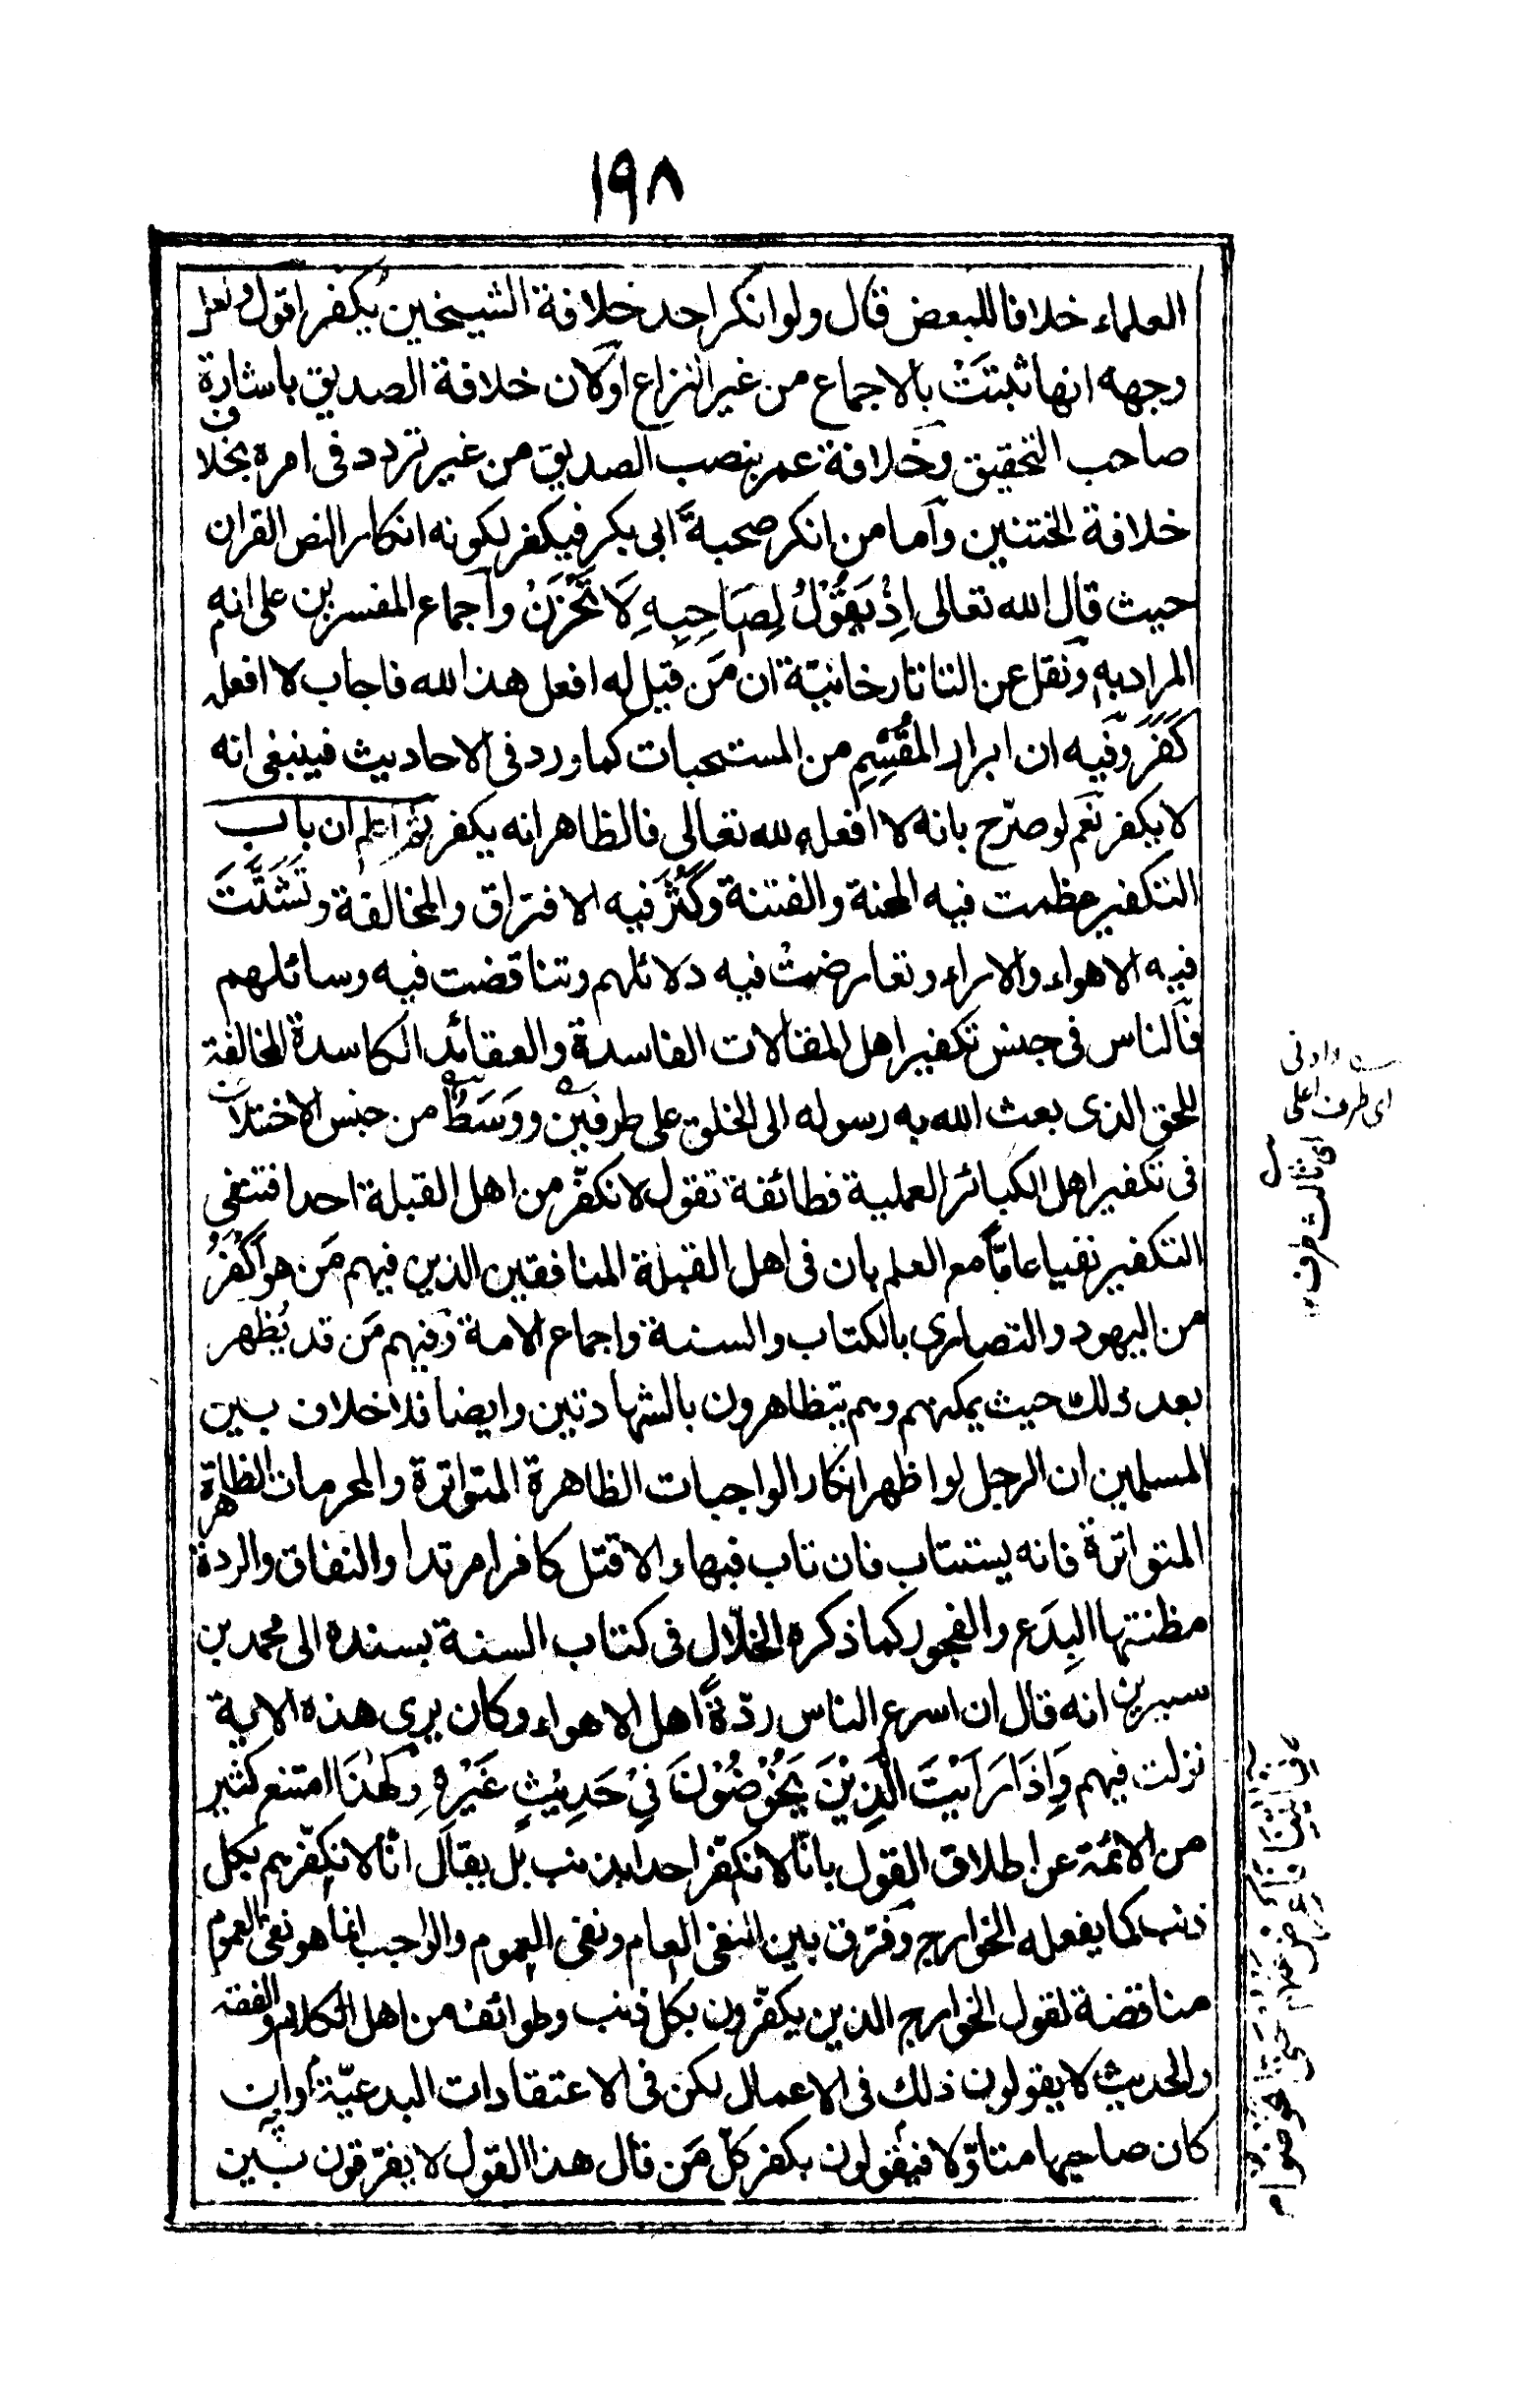 ١٩٨
العلماء خلافا للبعض قال ولو انكر احد خلافة الشيخين يكفر اقول ولعل
وجهه انها ثبتت بالاجماع من غير النزاع او كان خلافة الصديق باشارة
صاحب التحقيق وخلافة عمر بنصب الصديق من غير تردد فى امره بخلاف
خلافة الختنين واما من انكر صحبة ابى بكر فيكفر لكونه انكار النص القران
حيث قال الله تعالى اِذْ يَقُوْلُ لِصَاحِبِهِ لَا تَحْزَنْ واجماع المفسرين على انه
المراد به ونقل عن التاتارخانيّة ان مَن قيل له افعل هذا لله فاجاب لا افعله
كَفَرَ وفيه ان ابرار المُقْسِمِ من المستحبات كما ورد فى الاحاديث فينبغى انه
لا يكفر نعم لو صرّح بانه لا افعله لله تعالى فالظاهر انه يكفر ثم اعلم ان باب
التكفير عظمت فيه المحنة والفتنة وكَثُرَ فيه الافتراق والمخالفة وتَشَتَّتَ
فيه الاهواء والاراء وتعارضت فيه دلائلهم وتناقضت فيه وسائلهم
فالناس فى جنس تكفير اهل المقالات الفاسدة والعقائد الكاسدة المخالفة
للحق الذى بعث الله به رسوله الى الخلق على طرفين ووَسَطٌ من جنس الاختلاف
فى تكفير اهل الكبائر العملية فطائفة تقول لا نكفّر من اهل القبلة احدا فتنفى
التكفير نفيا عامًّا مع العلم بان فى اهل القبلة المنافقين الذين فيهم مَن هو اَكْفَرُ
من اليهود والنصارى بالكتاب والسنة واجماع الامة وفيهم مَن قد يُظهر
بعد ذلك حيث يمكنهم وهم يتظاهرون بالشهادتين وايضا فلا خلاف بين
المسلمين ان الرجل لو اظهر انكار الواجبات الظاهرة المتواترة والمحرمات الظاهرة
المتواترة فانه يستتاب فان تاب فبها والا قتل كافرا مرتدا والنفاق والردة
مظنتها البِدَع والفجور كما ذكره الخلّال فى كتاب السنة بسنده الى محمد بن
سيرين انه قال ان اسرع الناس ردّةً اهل الاهواء وكان يرى هذه الاية
نزلت فيهم وَاِذَا رَاَيْتَ الَّذِيْنَ يَخُوْضُوْنَ فِىْ حَدِيْثٍ غَيْرِهِ ولِهٰذَا امتنع كثير
من الائمة عن اطلاق القول بانّا لا نكفّر احدا بذنب بل يقال انّا لا نكفّرهم بكل
ذنب كما يفعله الخوارج وفرق بين النفى العام ونفى العموم والواجب انما هو نفى العموم
مناقضة لقول الخوارج الذين يكفّرون بكل ذنب وطوائف من اهل الكلام والفقه
والحديث لا يقولون ذلك فى الاعمال لكن فى الاعتقادات البدعيّة او ان
كان صاحبها متاوّلا فيقولون بكفر كلّ مَن قال هذا القول لا يفرّقون بين
اى طرف اعلى
وادنى
اى ثالث طرف